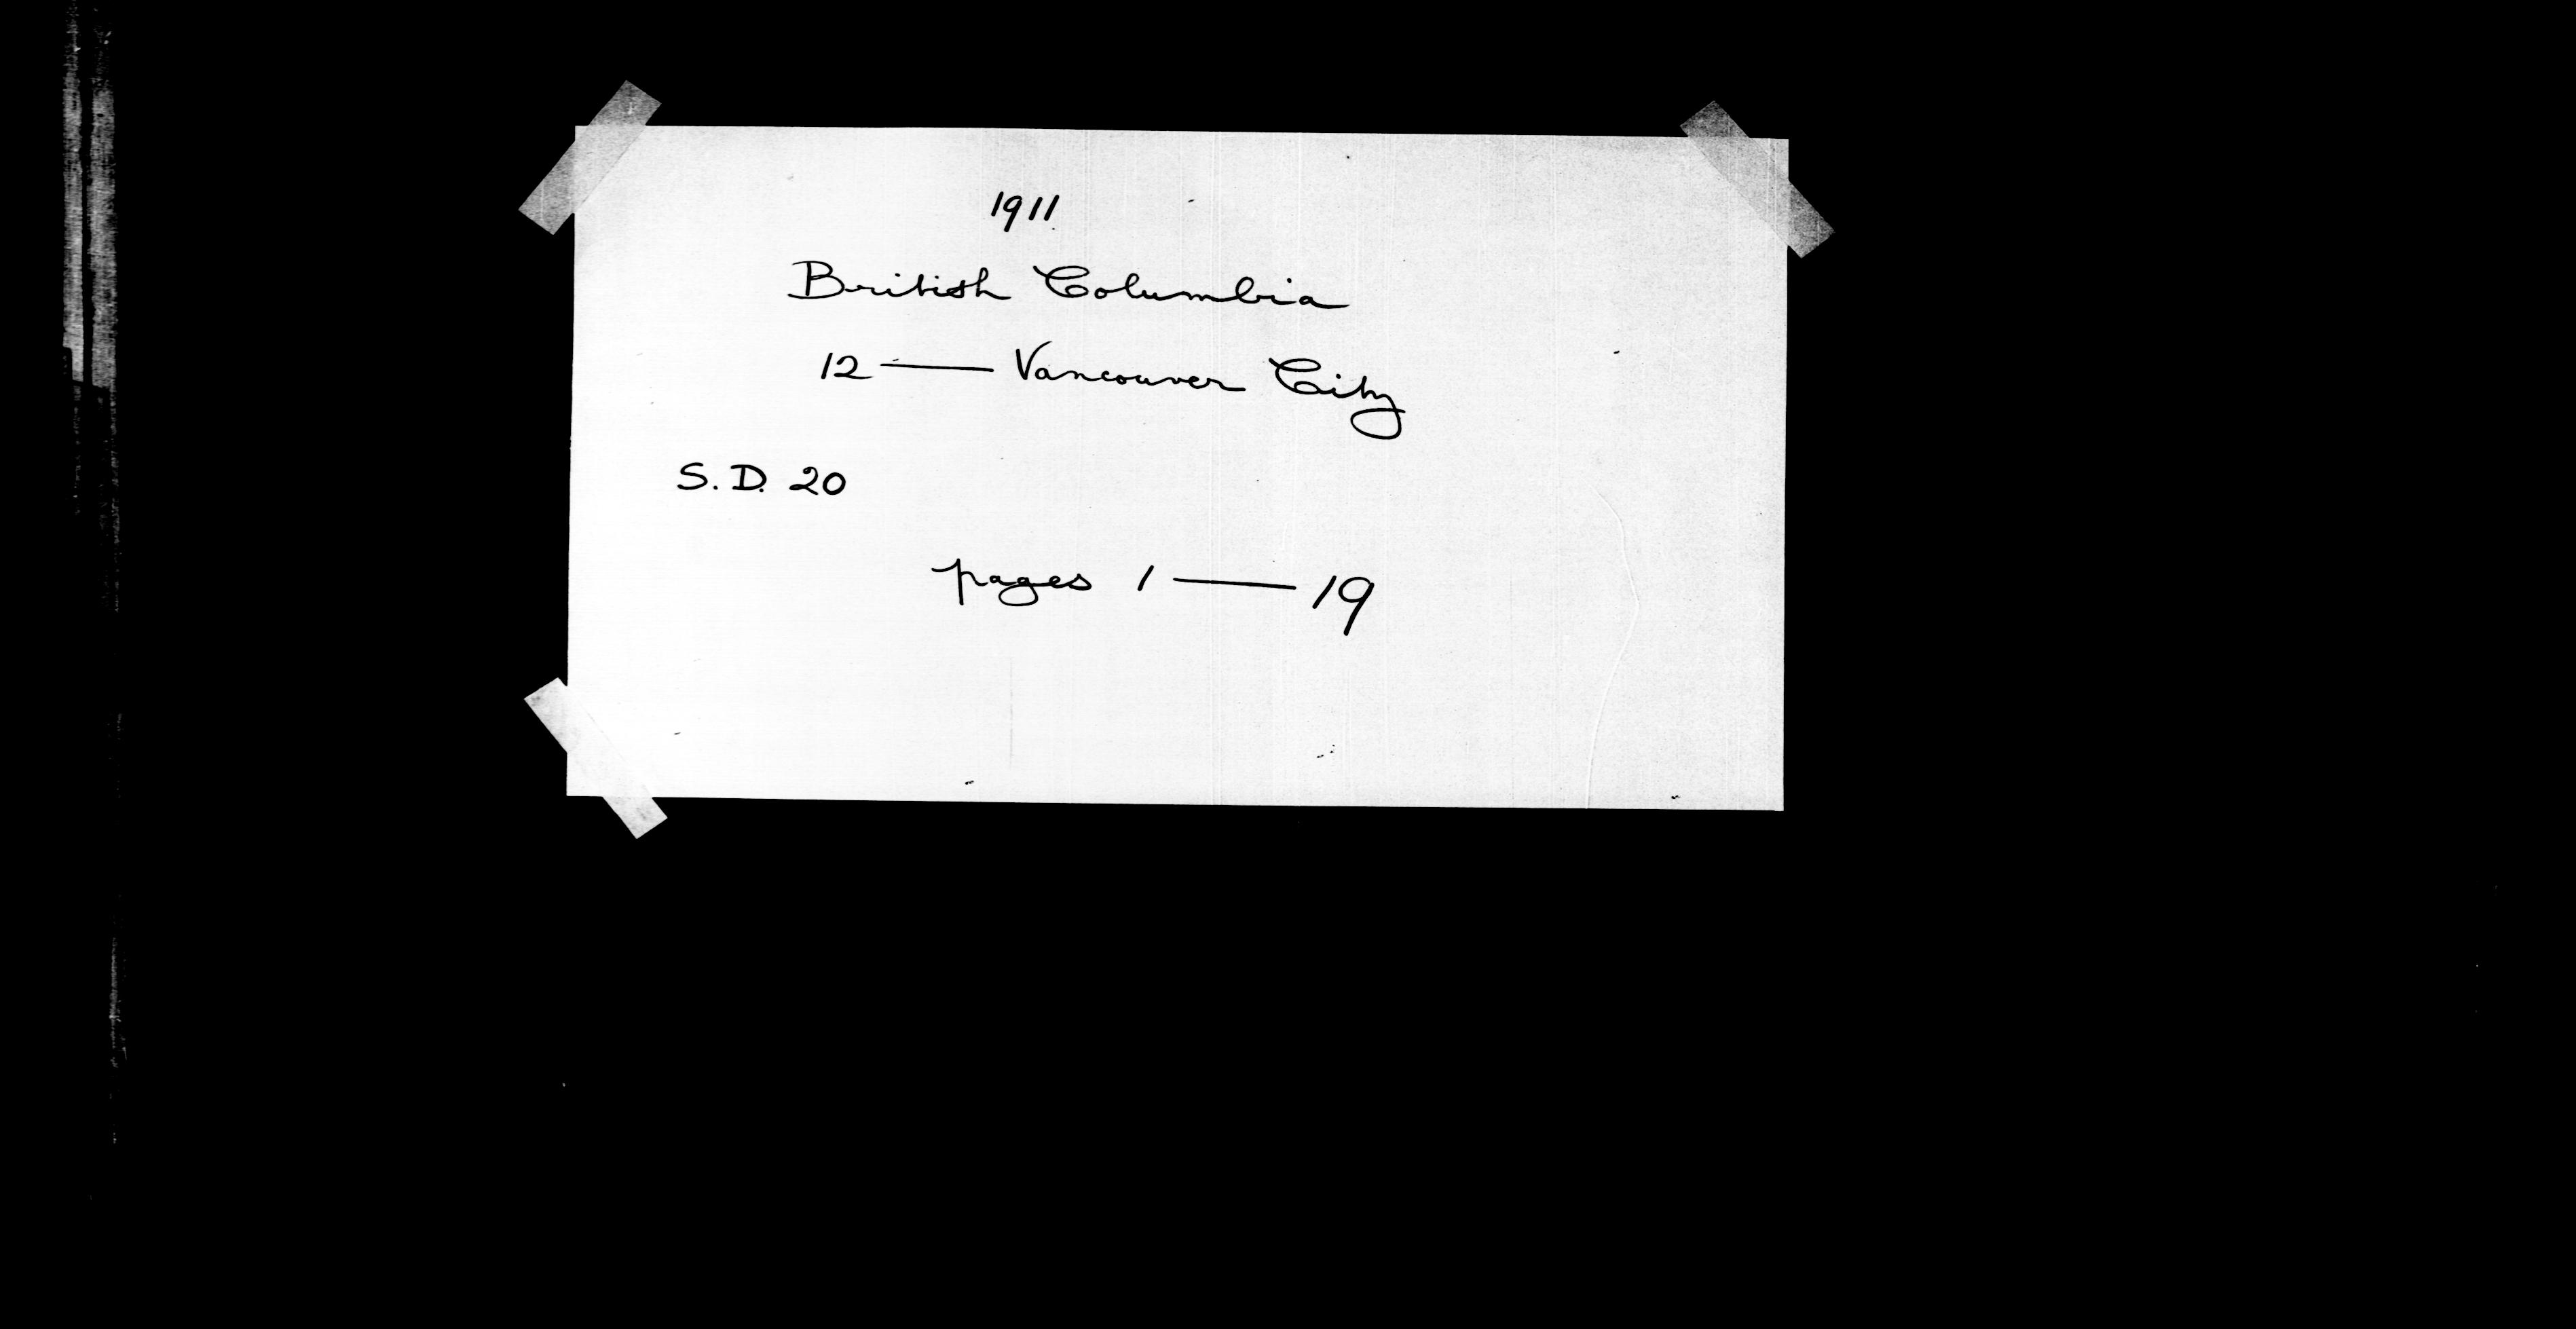 1911
British Columbia
12 — Vancouver City
S. D. 20
pages 1 — 19